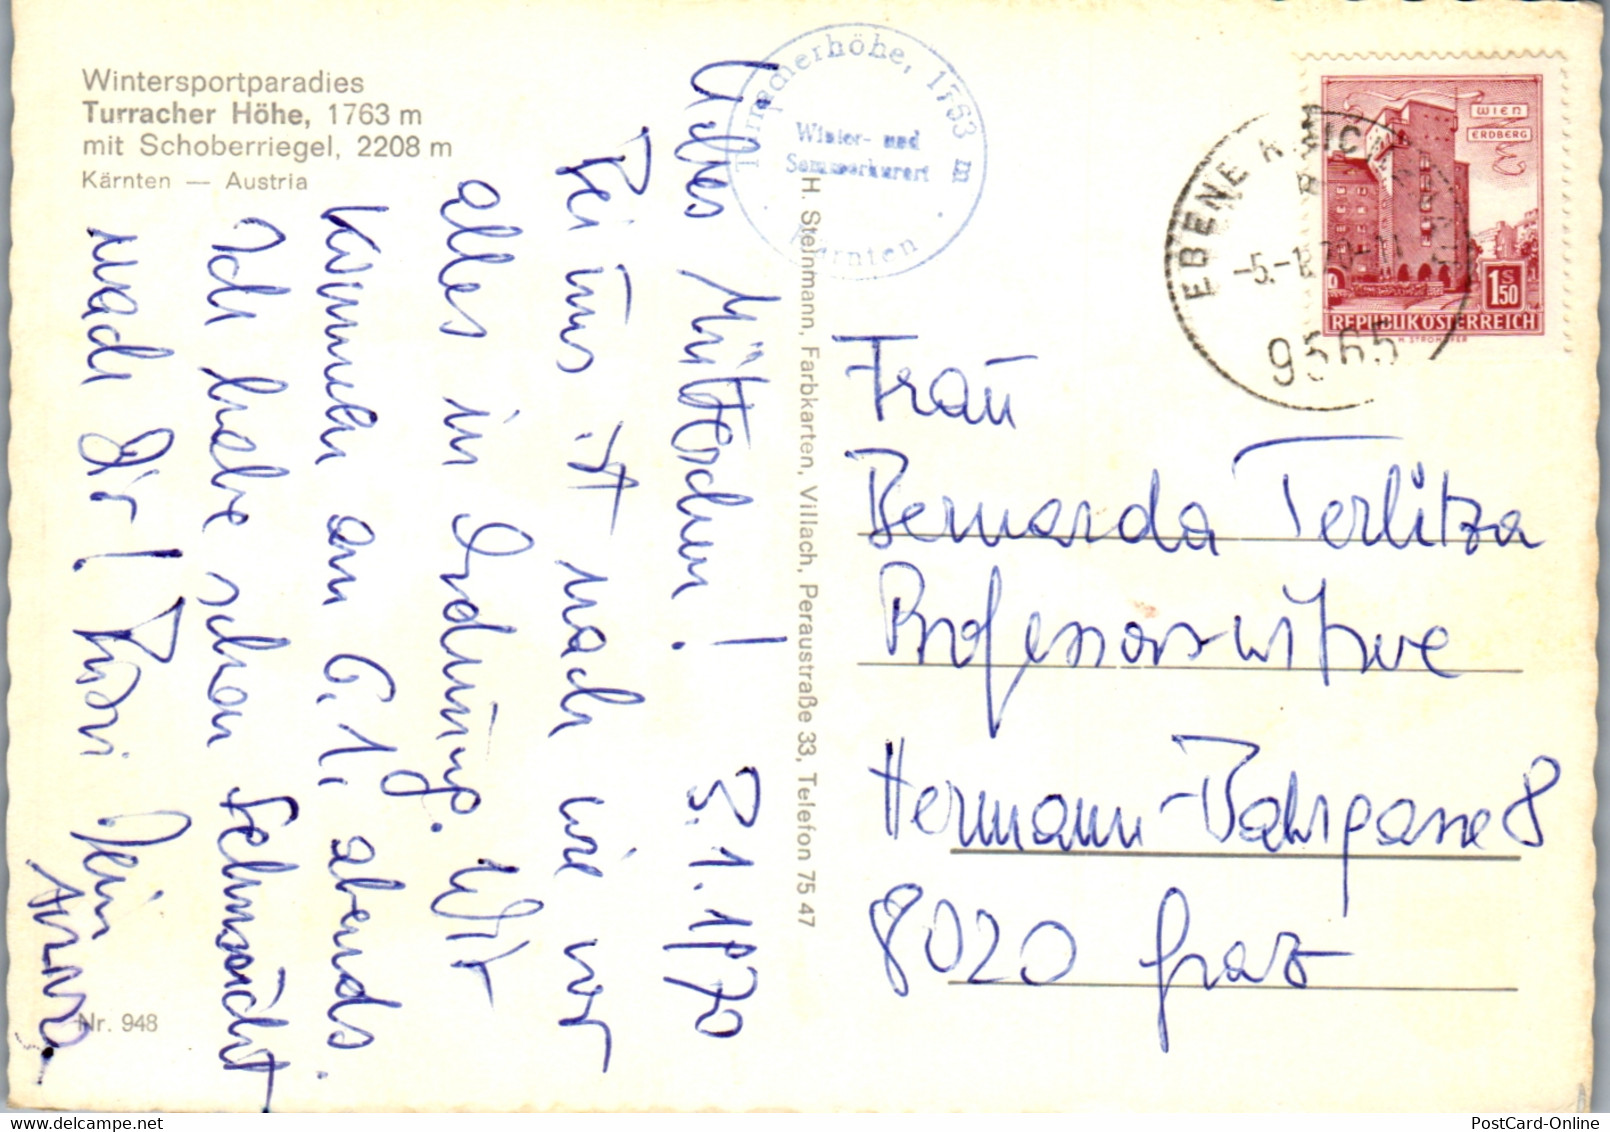 Wintersportparadies
Turracher Höhe, 1763 m
mit Schoberriegel, 2208 m
Kärnten — Austria
Liebes Mütterchen! 3.1.1970
Bei uns ist nach wie vor
alles in Ordnung. Wir
kommen am 6.1. abends.
Ich habe schon Sehnsucht
nach Dir! Bussi Dein
Nr. 948
H. Steinmann, Farbkarten, Villach, Peraustraße 33, Telefon 75 47
Turracherhöhe, 1763 m
Winter- und
Sommerkurort
Kärnten
EBENE REICHENAU
-5.-1.70-11
9565
WIEN
ERDBERG
1 S 50
REPUBLIK ÖSTERREICH
Frau
Bernarda Terlitza
Professorswitwe
Hermann-Bahrgasse 8
8020 Graz
PostCard-Online